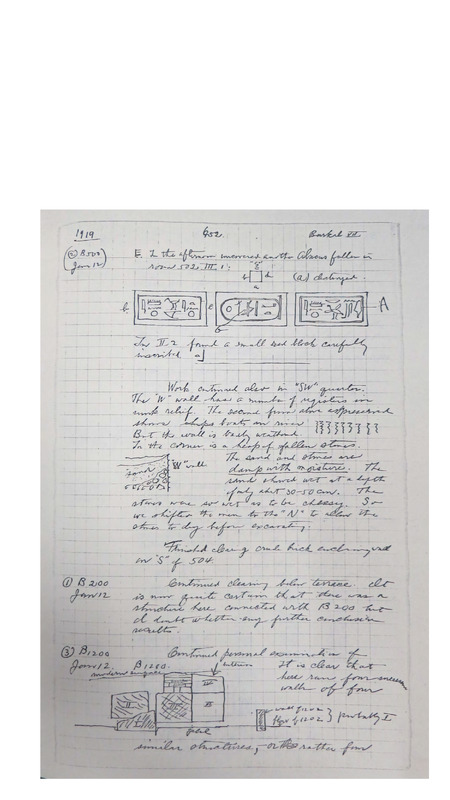 1919 652 Barkal VII
(2) B500 E. In the afternoon uncovered another column fallen in
(Jan 12) room 502 III 1:
(a) destroyed.
b
c
A
In II 2 found a small sed block carefully
inscribed
Work continued also in "SW" quarter.
The "W" wall has a number of registers in
sunk relief. The second from above as preserved
shows ships boats on river
But the wall is badly weathered
In the corner is a heap of fallen stones.
sand "W" wall The sand and stones are
damp with moisture. The
sand showed wet at a depth
of only about 30-50 cm. The
stones were so wet as to be cheesy. So
we shifted the men to the "N" to allow the
stones to dry before excavating.
Finished clearing crude brick enclosing wall
on "S" of 504.
(1) B200 Continued clearing below terrace. It
Jan 12 is now quite certain that there was a
structure here connected with B200 but
I doubt whether any further conclusive
results.
(3) B1200 Continued personal examination of
Jan 12. B1200. interior It is clear that
modern surface here run four
walls of four
wall of 1202
floor of 1202 } probably I
similar structures, or rather four